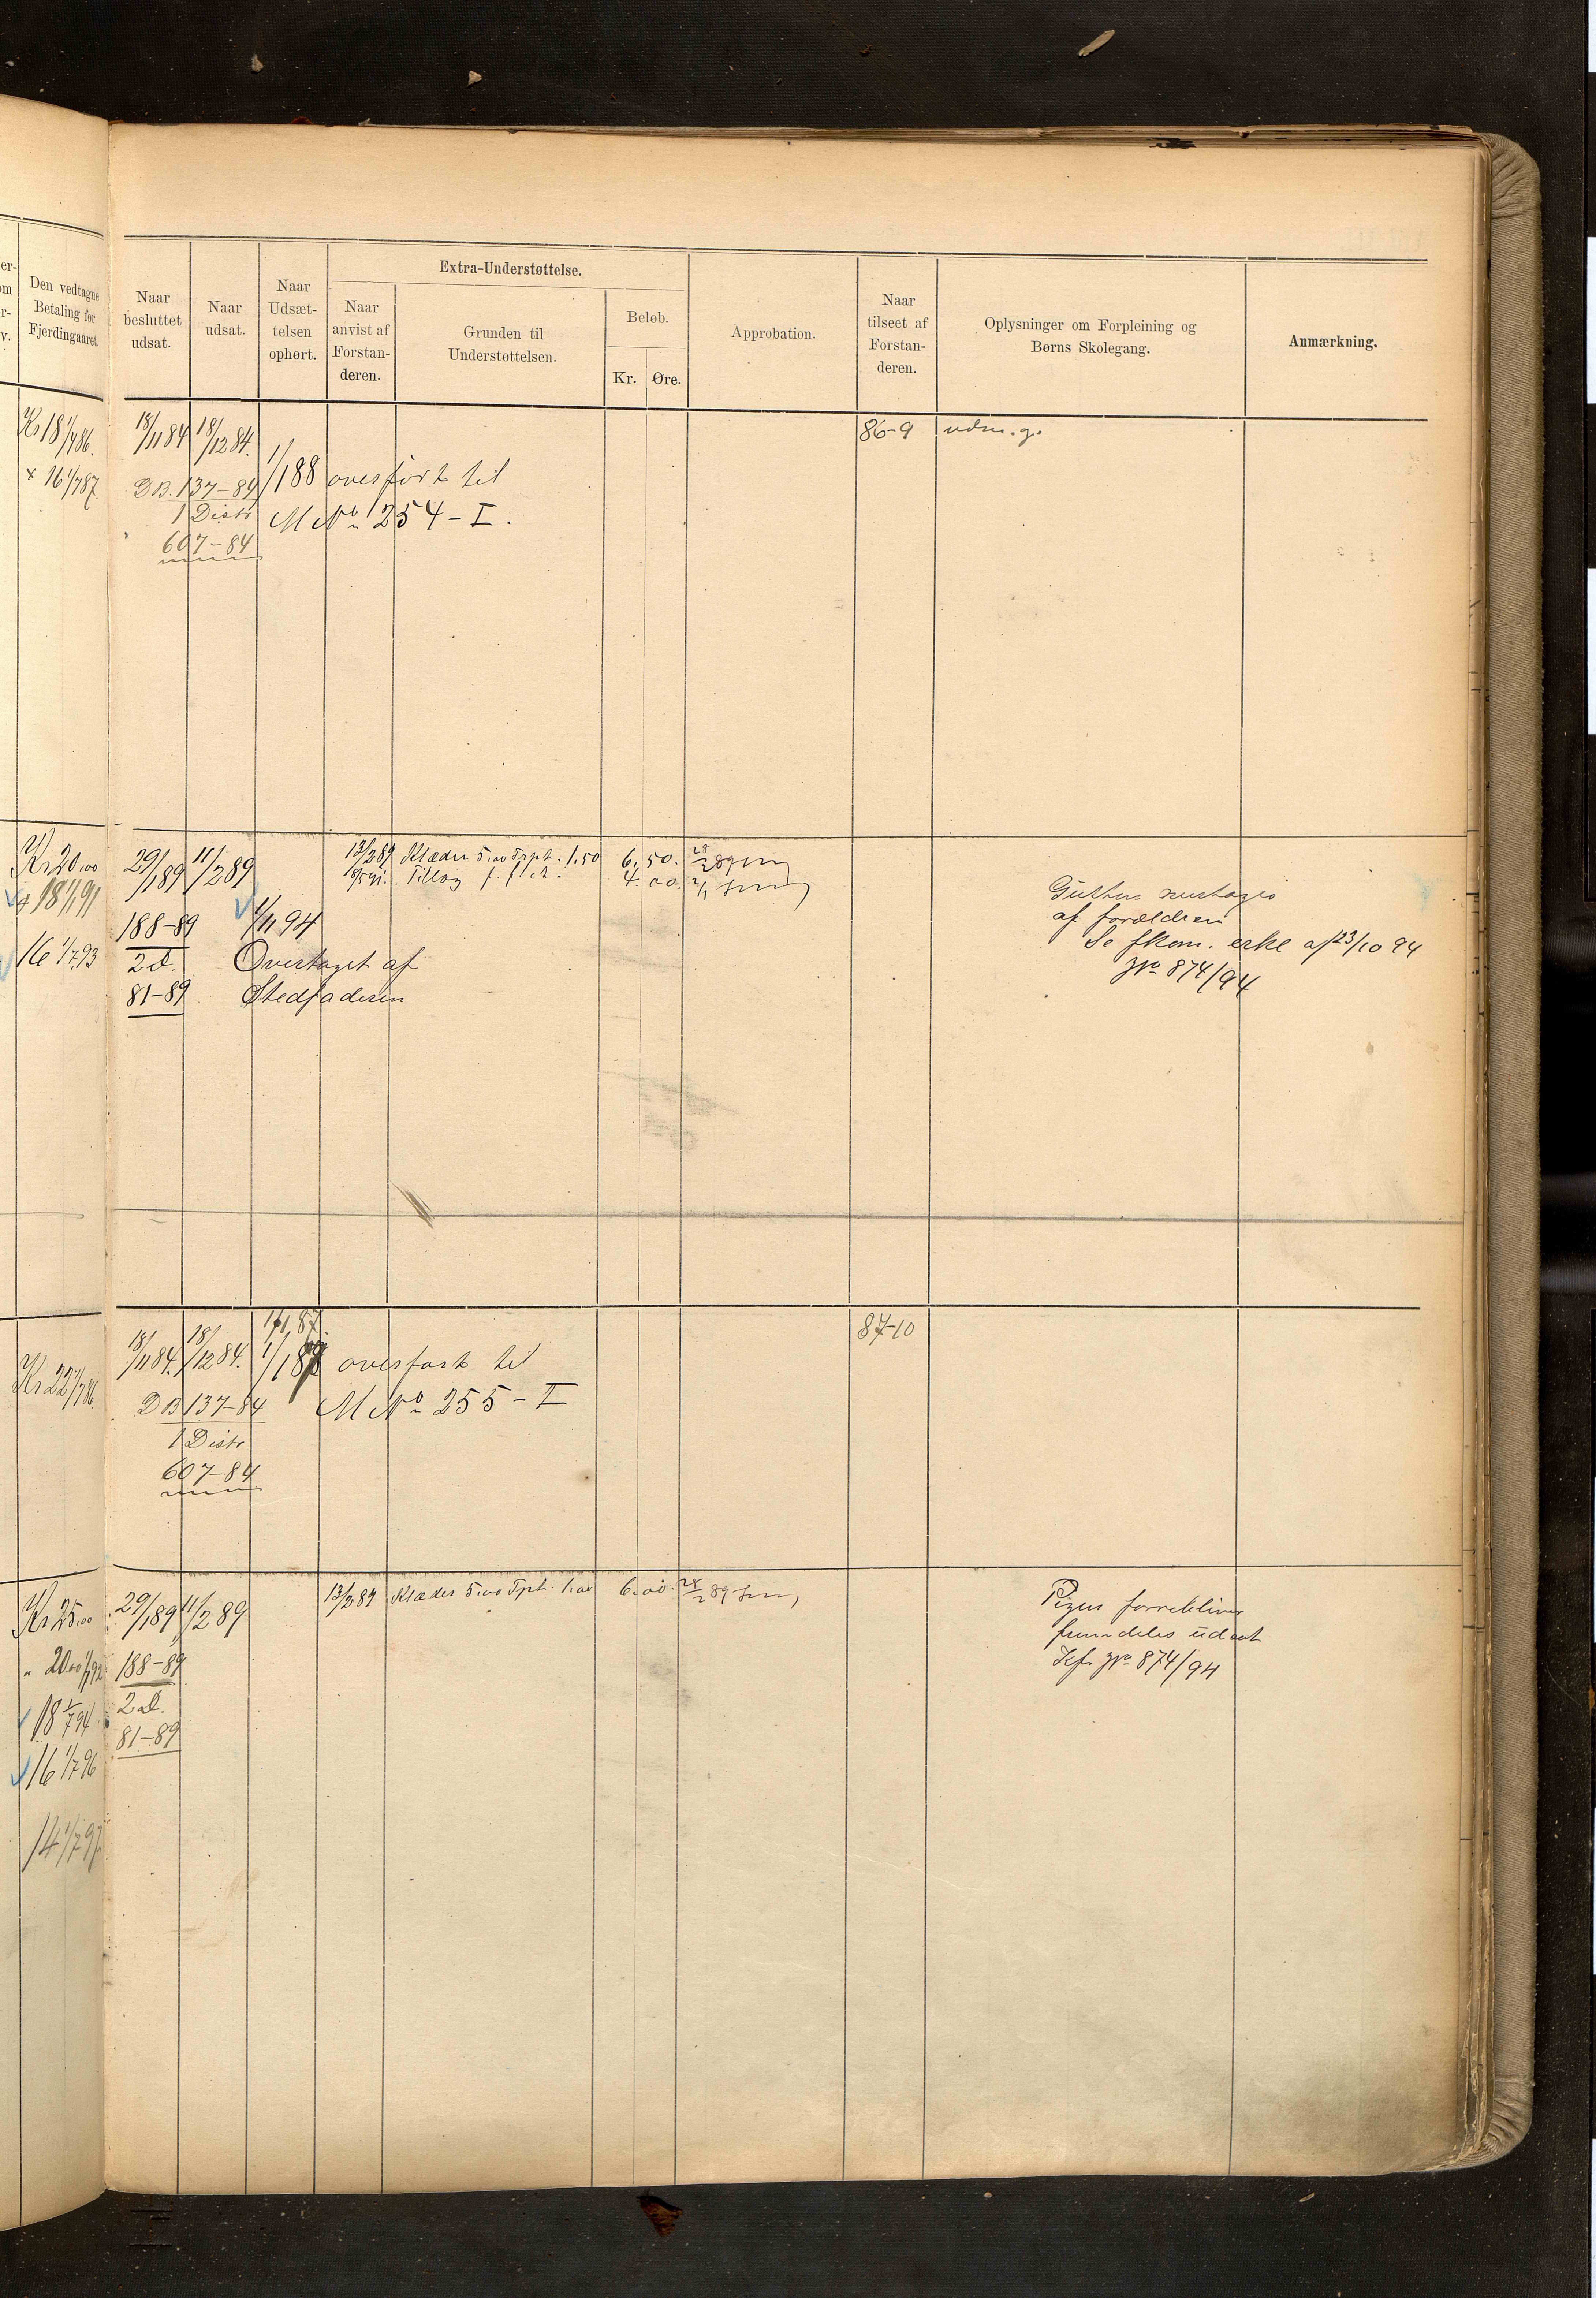 Den vedtagne
Betaling for
Fjerdingaaret.
Naar
besluttet
udsat.
Naar
udsat.
Naar
Udsæt-
telsen
ophørt.
Extra-Understøttelse.
Naar
anvist af
Forstan-
deren.
Grunden til
Understøttelsen.
Beløb.
Kr.
Øre.
Approbation.
Naar
tilseet af
Forstan-
deren.
Oplysninger om Forpleining og
Børns Skolegang.
Anmærkning.
Kr 18 1/7 86.
16 1/7 87
18/11 84 18/12 84.
DB. 137-84
1 Distr
607-84
1/1 88 overført til
M No 254-I.
86-9
Kr 20,00
18 1/1 91
16 1/7 93
29/1 89 11/2 89
188-89
2 d.
81-89
1/11 94
Overtaget af
Stedfaderen
13/2 89 Klæder 5,00 Trpt. 1,50 6.50. 28/2 89
Tillæg 4.00.
Gutten
af forældren
Se fkom. erkl af 23/10 94
No 874/94
Kr 22 1/7 86.
18/11 84. 18/12 84.
DB 137-84
1 Distr
607-84
1/1 88 overført til
M No 255-I
87-10
Kr 25,00
" 20,00 1/1 92
18 1/7 94
16 1/7 96
14 1/7 97
29/1 89 11/2 89
188-89
2 d.
81-89
13/2 89 Klæder 5,00 Trpt. 1,00 6.00. 28/2 89
Pigen forrebliver
fremdeles udsat
Kfr No 874/94